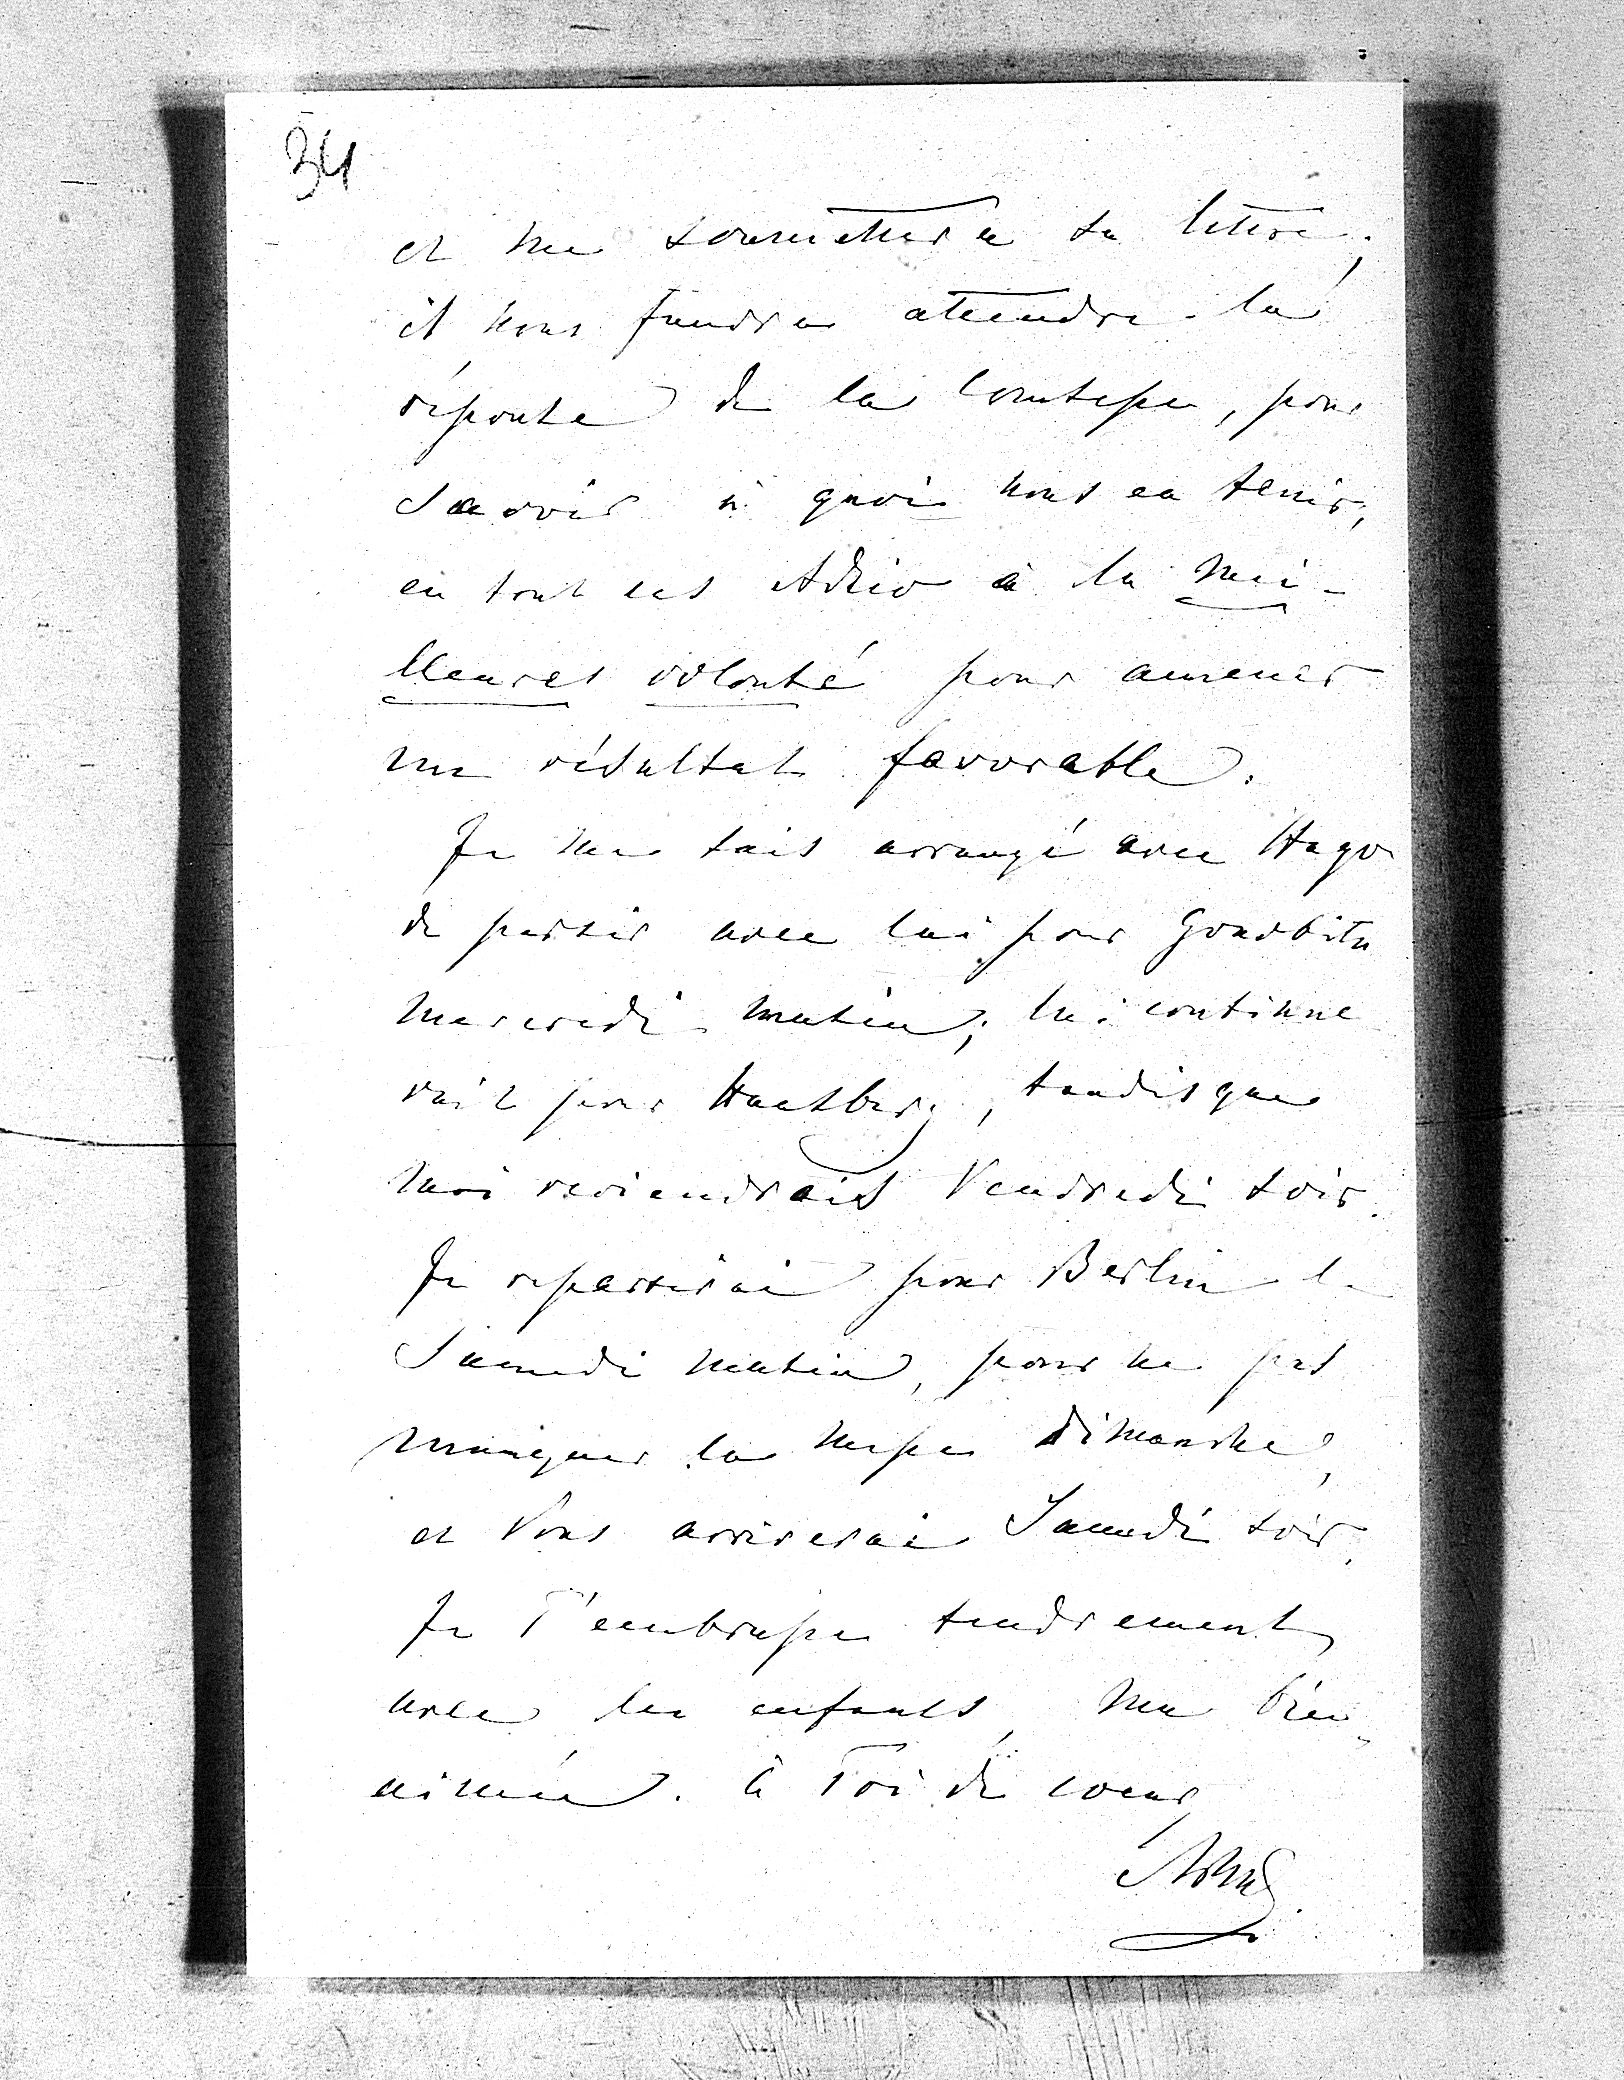 34
et me soumettra sa lettre;
il nous faudra attendre la
réponse de la Comtesse, pour
savoir à quoi nous en tenir;
en tout cas Adzio a la mei-
lleures volonté pour amener
un résultat favorable.
Je me suis arrangé avec Hugo
de partir avec lui pour
mercredi matin; lui continue
rait pour, tandisque
moi reviendrais Vendredi soir.
Je repartirai pour Berlin le
Samedi matin, pour ne pas
manquer la messe dimanche,
et Vous arriverai Samedi soir.
Je T'embrasse tendrement
avec les enfants, ma bien
aimée. à Toi de coeur